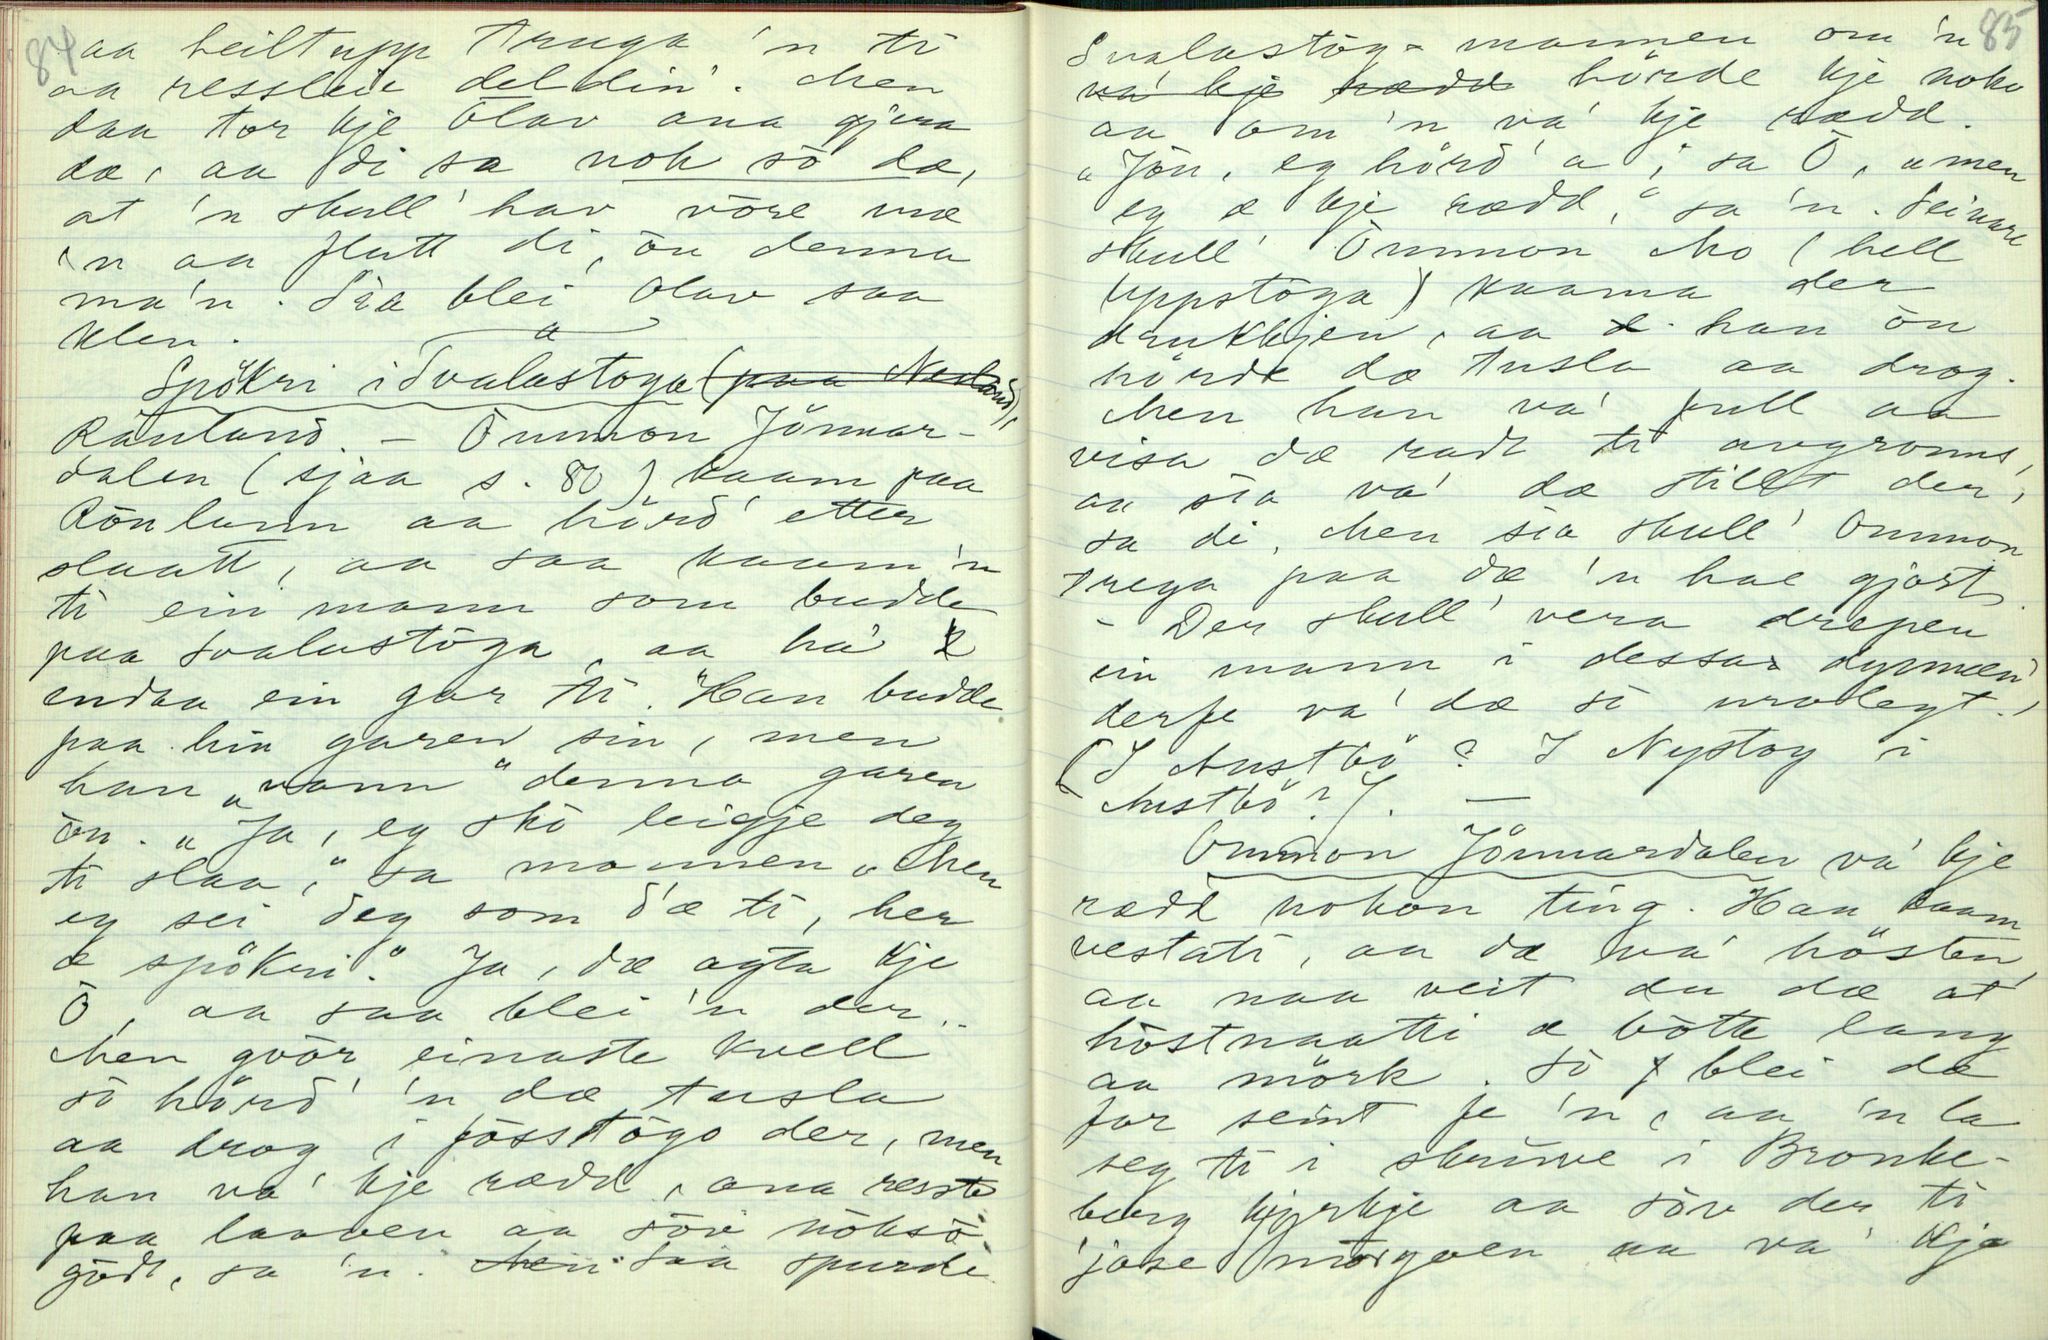 84
aa heiltupp truga 'n ti
aa ressleie deldin'. Men
daa tor kje Olav ana gjera
dæ, aa di sa nok so dæ,
at 'n skull' hav vöre mæ
'n aa flutt di, ön denna
ma'n. Sia blei Olav saa
klen.
Spökri i Svalastoga (paa Nesland),
Rauland. — Ōnmon Jönnar-
dalen (sjaa s. 80) kaam paa
Rönlann aa hörd' etter
slaatt, aa saa kaam 'n
ti ein mann som budde
paa Svalastöga, aa ha'
endaa ein gar ti. Han budde
paa hin garen sin, men
han „vann" denna garen
ön. „Ja, eg skö leigje deg
ti slaa," sa mannen „Men
eg sei deg som d'æ ti, her
æ spökri." Ja, dæ agta kje
Ō, aa saa blei 'n der.
Men gvör einaste kvell
so hörd' 'n dæ tusla
aa drog i fösstögo der, men
han va' kje rædd, ana resste
paa laaven aa söv nöksö
gödt, sa 'n. Men Saa spurde
85
Svalastög-mannen om 'n
va' kje rædd hörde kje noko
aa om 'n va' kje rædd.
„Jön, eg hörd' a", sa Ō, „men
eg æ kje rædd," sa 'n. Seinare
skull' Ōnmon Mo (hell
Uppstöga) kaama der
drukkjen, aa han ön
hörde dæ tusla aa drog.
Men han va' full aa
visa dæ radt ti avgronns,
aa sia va' dæ stillt der,
sa di. Men sia skull' Onmon
trega paa dæ 'n hae gjort.
– Der skull' vera drepen
ein mann i dessa dyrmæn',
derfe va' dæ so urolegt.
(I Austbö? I Nystog i
Austbö?). —
Onmon Jönnardalen va' kje
rædd nokon ting. Han kaam
vestati, aa dæ va' hösten,
aa naa veit du dæ at
höstnaatti æ bötte lang
aa mörk. So blei dæ
for seint fe 'n, aa 'n la
seg ti i skruve i Bronke-
berg kjyrkje aa söv der ti
'jose morgoen aa va' kje